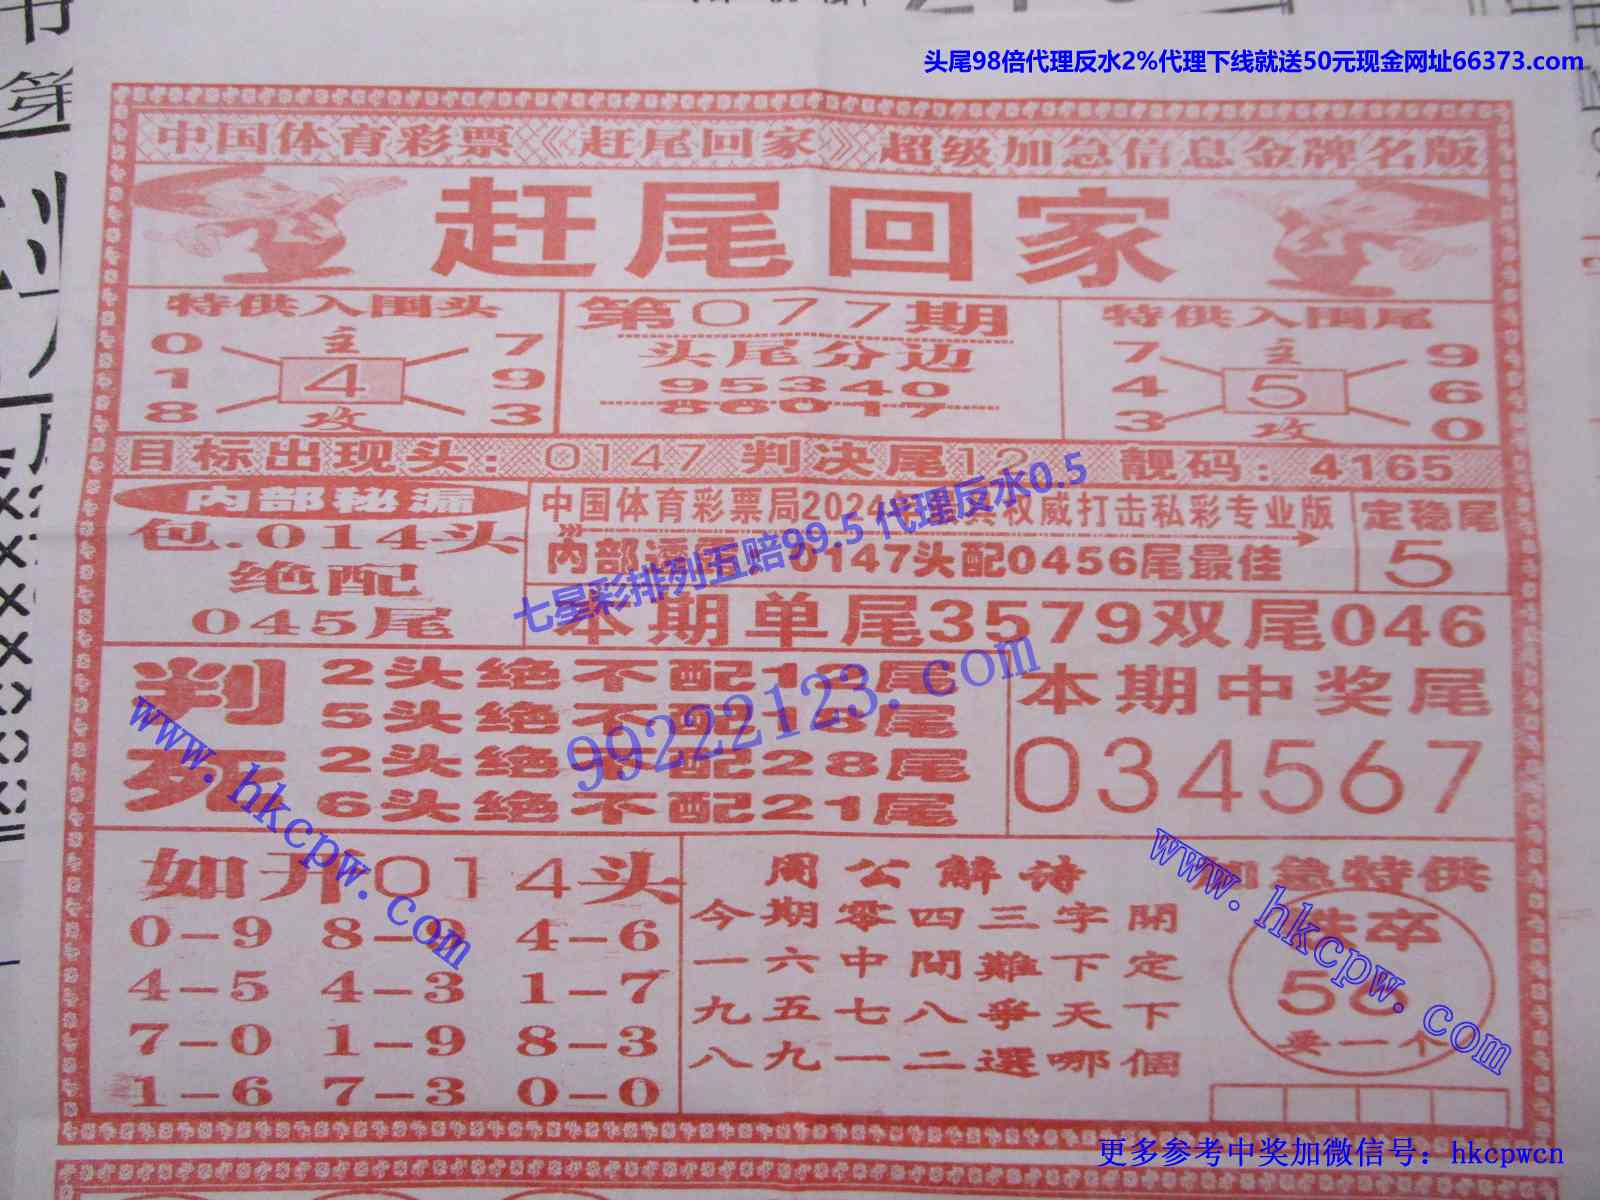 头尾98倍代理反水2%代理下线就送50元现金网址66373.com
中国体育彩票《赶尾回家》超级加急信息金牌名版
赶尾回家
特供入围头
0 主 7
1 4 9
8 攻 3
第077期
头尾分边
95340
86017
特供入围尾
7 主 9
4 5 6
3 攻 0
目标出现头：0147 判决尾12 靓码：4165
内部秘漏
包.014头
绝配
045尾
中国体育彩票局2024 权威打击私彩专业版
内部透 0147头配0456尾最佳
定稳尾
5
七星彩排列五赔99.5 代理反水0.5
本期单尾3579双尾046
判死
2头绝不配1 尾
5头绝不配18尾
2头绝不配28尾
6头绝不配21尾
99222123.com
本期中奖尾
034567
www.hkcpw.com
如开014头
0-9 8-9 4-6
4-5 4-3 1-7
7-0 1-9 8-3
1-6 7-3 0-0
周公解诗
今期零四三字開
一六中間難下定
九五七八爭天下
八九一二選哪個
加急特供
卒
56
要一个
www.hkcpw.com
更多参考中奖加微信号：hkcpwcn